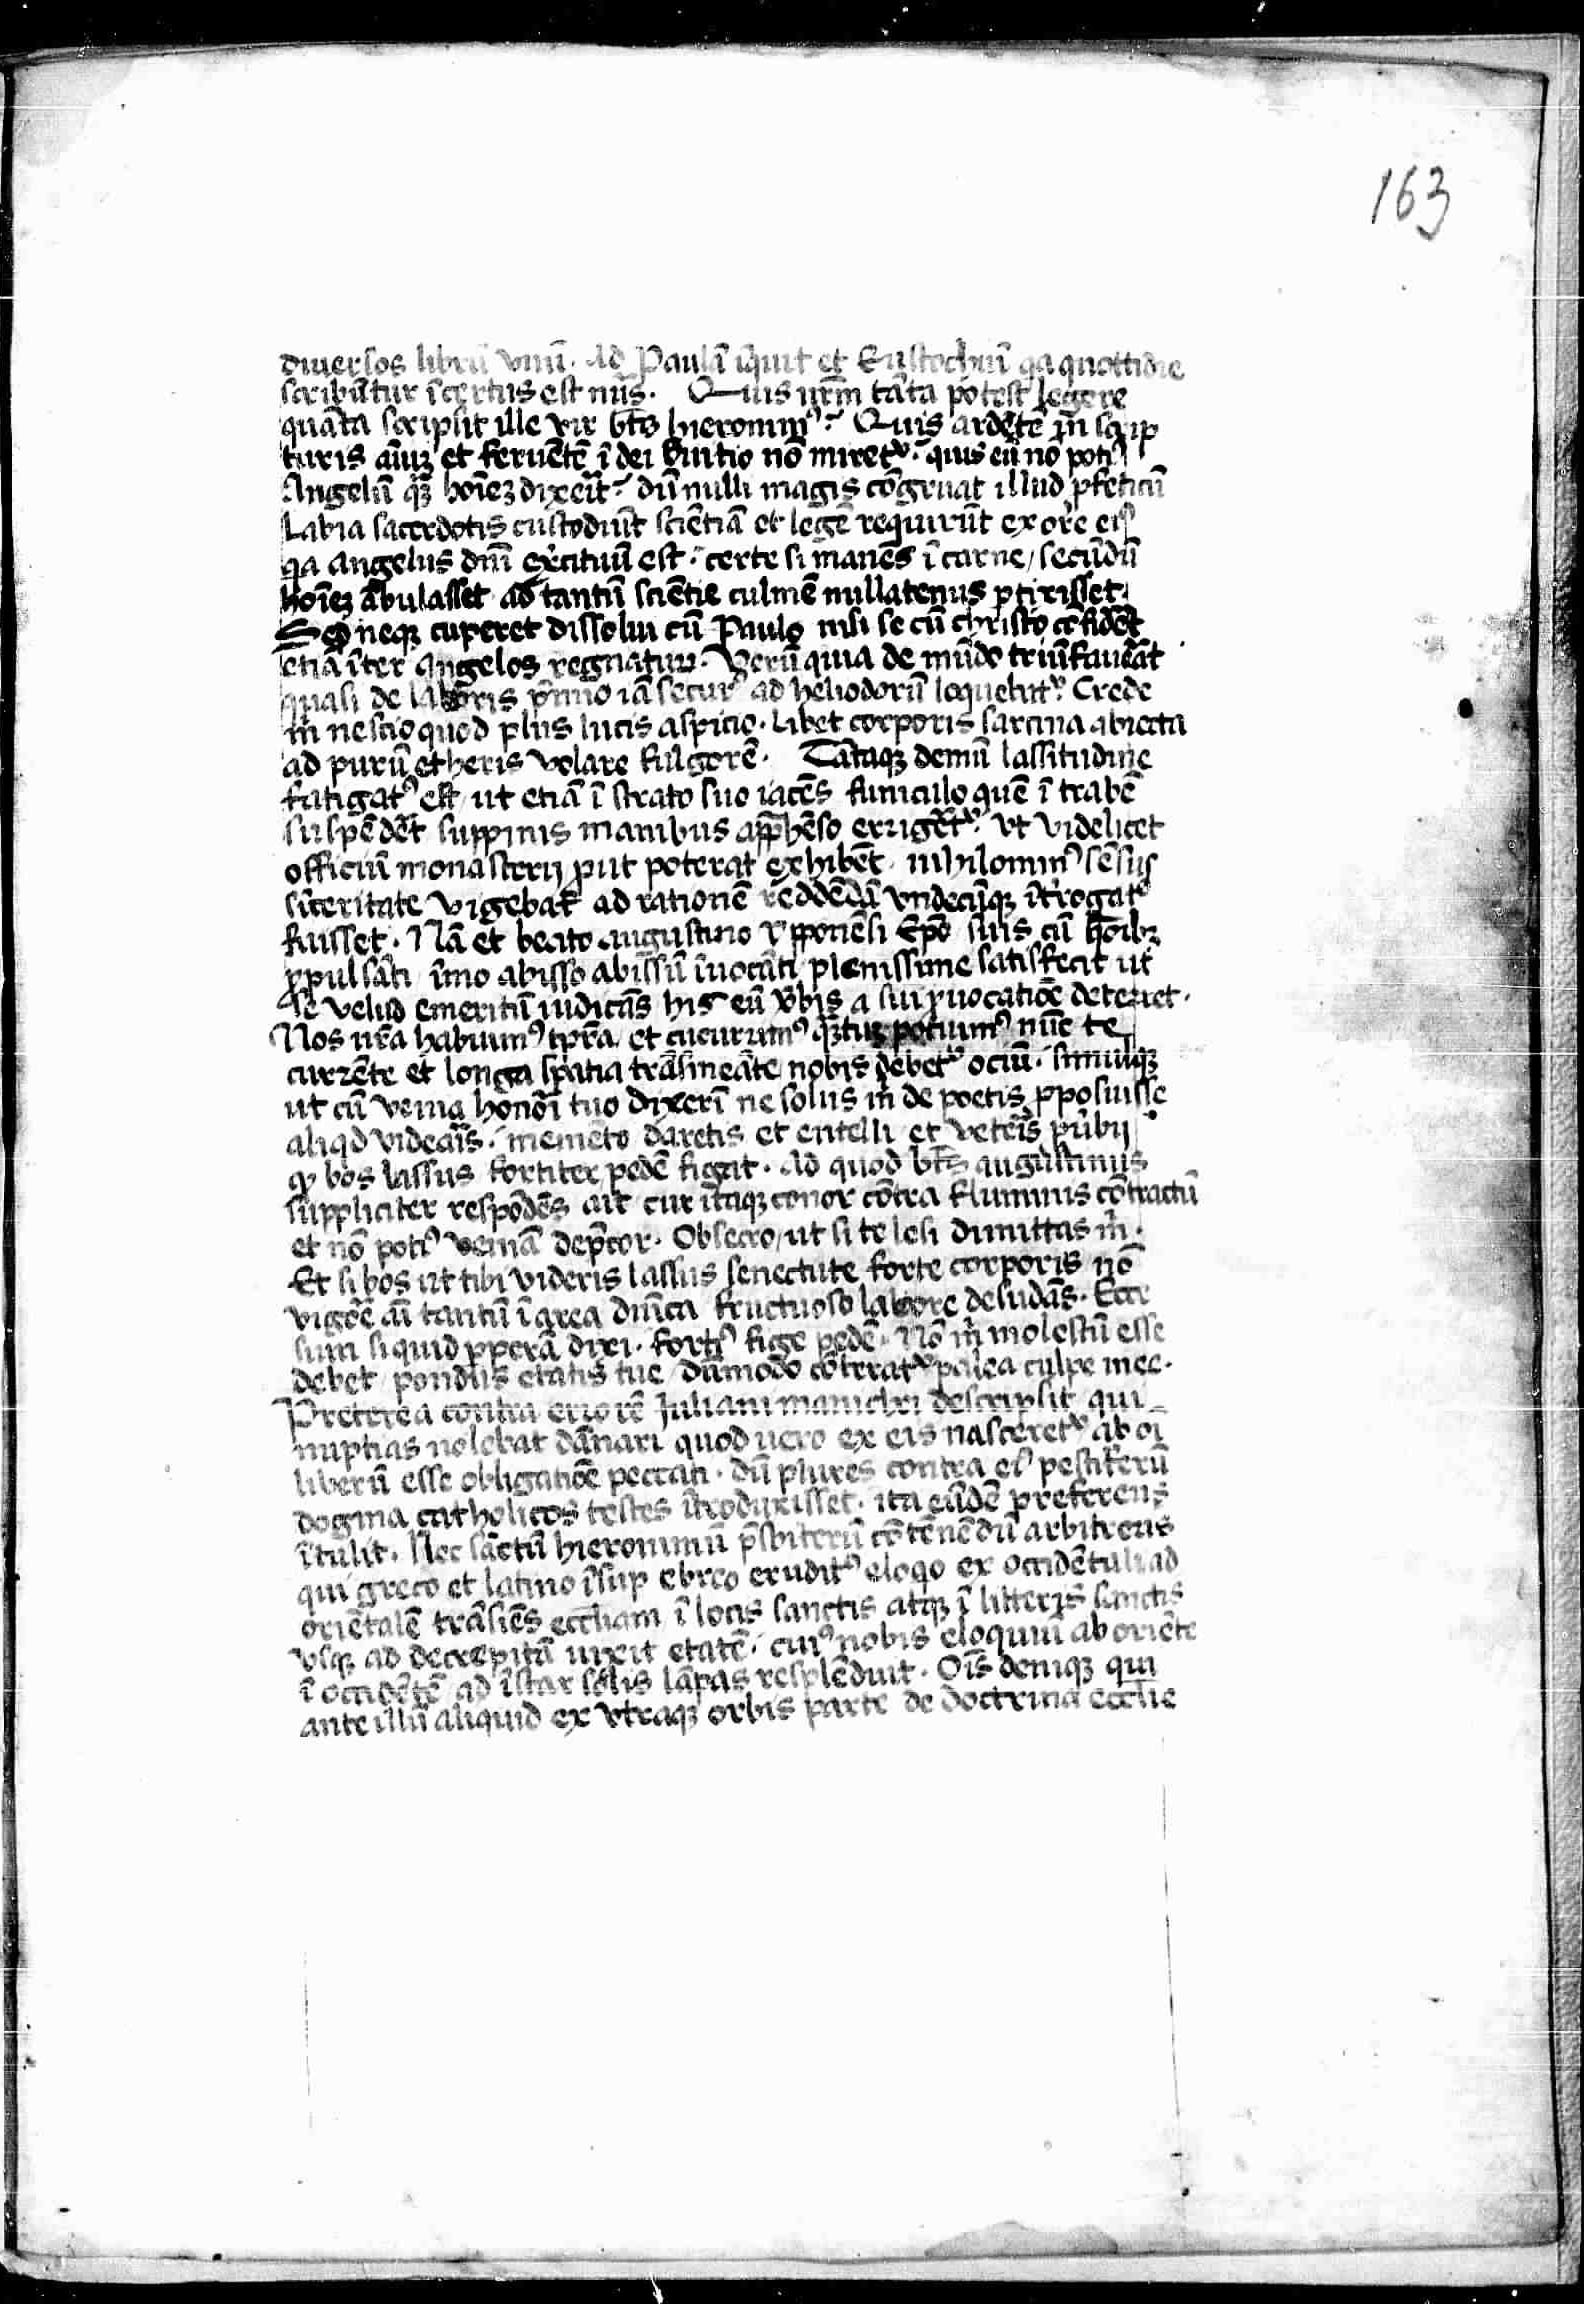 163
diuersos librũ vnũ. Ad Paulã iq̃uit et Eustochiũ qa quottidie
scribũtur ĩcertus est nũs. Quis nr̃m tãta potest legere
quãta scripsit ille vir bt̃s hieronim9? Quis ardẽtẽ in scrip
turis aĩuȝ et feruẽtẽ ĩ dei nõ miret᷑? quis eũ nõ poti9
Angelũ qȝ hoĩeȝ dixeĩt? dũ nulli magis cõgruat illud pfeticũ
Labia sacerdotis custodiũt sciẽtiã et legẽ requirũt ex ore ei9
qa angelus dñi exc̃ituũ est. certe si manẽs ĩ carne / secũdũ
hoĩeȝ ãbulasset ad tantũ sciẽtie culmẽ nullatenus ptixisset.
Sed neqȝ cuperet dissolui cũ Paulo nisi se cũ christo cõfidẽt
etiã ĩter angelos regnaturũ. Verũ quia de mũdo triũfauẽat
quasi de laboris p̃mio iã secur9 ad heliodorũ loquetut᷑ Crede
m̃ nescio quod plus lucis aspicio. Libet corporis sarcina abiecta
ad purũ etheris volare fulgorẽ. Tãtaqȝ demũ lassitudine
fatigat9 est / ut etiã ĩ strato suo iacẽs funiculo quẽ ĩ trabẽ
suspẽdẽt suppinis manibus app̃hẽso errigẽt᷑. vt videlicet
officiũ monasterij put poterat exhibẽt. nihilomin9 sẽsus
sĩceritate vigebat ad rationẽ reddẽdã vndecũqȝ ĩtrogat9
fuisset. Nã et beato augustino yppõnẽsi Ep̃o suis cũ
ppulsãti ĩmo abisso abissũ ĩuocãti plenissime satisfecit ut
se velud emeritũ iudicãs his eũ vbis a sui puocatiõe deterret.
Nos nr̃a habuim9 tpr̃a et cucurrim9 qȝtuȝ potuim9 nũc te
currẽte et longa spatia trãsmeãte nobis debet᷑ ociũ. simulqȝ
ut cũ venia honõi tuo dixerĩ ne solus m̃ de poetis pposuisse
aliqd videaĩs. memẽto daretis et entelli et vetẽis puũbij
qȝ bos lassus fortiter pedẽ figat. Ad quod bt̃s augustinus
suppliciter respõdẽs ait cur itaqȝ conor cõtra fluminis cõtractũ
et nõ poti9 veniã dep̃cor. Obsecro / ut si te lesi dimittas m̃.
Et si bos ut tibi videris lassus senectute forte corporis nõ
vigõe aĩ tantũ ĩ area dnĩca fructuoso labore desudãs. Ecce
sum si quid pperã dixi. forti9 fige pedẽ. Nõ m̃ molestũ esse
debet pondus etatis tue / dũmodo cõterat᷑ palea culpe mee.
Preterea contra errorẽ Juliani manichei descripsit qui
nuptias nolebat dãnari quod uero ex eis nasceret᷑ ab oi
liberũ esse obligatiõe peccati. dũ plures contra ei9 pestiferũ
dogma catholicos testes ĩtroduxisset. ita eũdẽ preferens
ĩtulit. Nec sãctũ hieronimũ p̃sbiterũ cõtẽnẽdũ arbitreris
qui greco et latino ĩsup ebreo erudit9 eloqo ex occidẽtali ad
oriẽtalẽ trãsiẽs eccl̃iam ĩ locis sanctis atqȝ ĩ litteris sanctis
vsqȝ ad decrepitã uixit etatẽ. cui9 nobis eloquiũ ab oriẽte
ĩ occidẽtẽ ad ĩstar solis lãpas resplẽduit. Oĩs deniqȝ qui
ante illũ aliquid ex vtraqȝ orbis parte de doctrina eccl̃ie